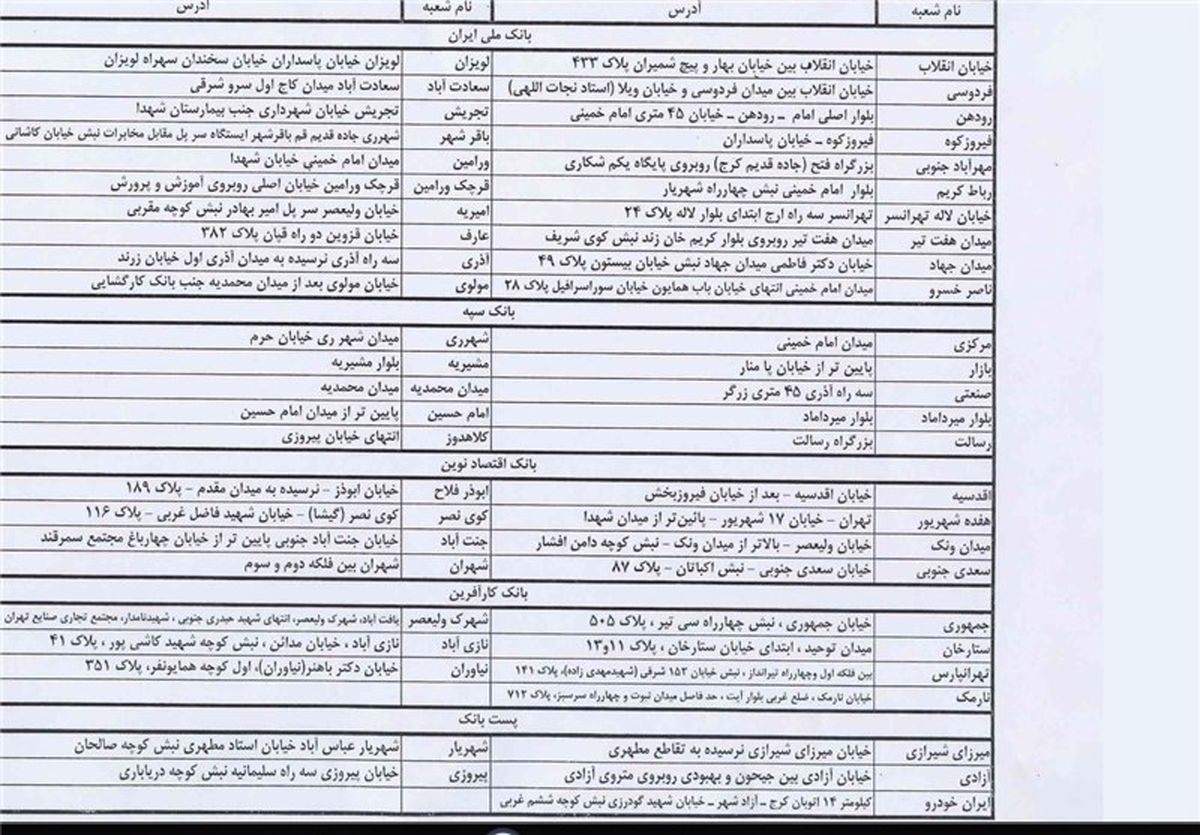 نام شعبه آدرس نام شعبه آدرس
بانک ملی ایران
خیابان انقلاب خیابان انقلاب بین خیابان بهار و پیچ شمیران پلاک ۴۳۳ لویزان لویزان خیابان پاسداران خیابان سخندان سهراه لویزان
فردوسی خیابان انقلاب بین میدان فردوسی و خیابان ویلا (استاد نجات اللهی) سعادت آباد سعادت آباد میدان کاج اول سرو شرقی
رودهن بلوار اصلی امام – رودهن – خیابان ۴۵ متری امام خمینی تجریش تجریش خیابان شهرداری جنب بیمارستان شهدا
فیروزکوه فیروزکوه – خیابان پاسداران باقر شهر شهرری جاده قدیم قم باقرشهر ایستگاه سر پل مقابل مخابرات نبش خیابان کاشانی
مهرآباد جنوبی بزرگراه فتح (جاده قدیم کرج) روبروی پایگاه یکم شکاری ورامین میدان امام خمینی خیابان شهدا
رباط کریم بلوار امام خمینی نبش چهارراه شهریار قرچک ورامین قرچک ورامین خیابان اصلی روبروی آموزش و پرورش
خیابان لاله تهرانسر تهرانسر سه راه ارج ابتدای بلوار لاله پلاک ۲۴ امیریه خیابان ولیعصر سر پل امیر بهادر نبش کوچه مقربی
میدان هفت تیر میدان هفت تیر روبروی بلوار کریم خان زند نبش کوی شریف عارف خیابان قزوین دو راه قپان پلاک ۳۸۲
میدان جهاد خیابان دکتر فاطمی میدان جهاد نبش خیابان بیستون پلاک ۴۹ آذری سه راه آذری نرسیده به میدان آذری اول خیابان زرند
ناصر خسرو میدان امام خمینی انتهای خیابان باب همایون خیابان سوراسرافیل پلاک ۲۸ مولوی خیابان مولوی بعد از میدان محمدیه جنب بانک کارگشایی
بانک سپه
مرکزی میدان امام خمینی شهرری میدان شهر ری خیابان حرم
بازار پایین تر از خیابان پا منار مشیریه بلوار مشیریه
صنعتی سه راه آذری ۴۵ متری زرگر میدان محمدیه میدان محمدیه
بلوار میرداماد بلوار میرداماد امام حسین پایین تر از میدان امام حسین
رسالت بزرگراه رسالت کلاهدوز انتهای خیابان پیروزی
بانک اقتصاد نوین
اقدسیه خیابان اقدسیه – بعد از خیابان فیروزبخش ابوذر فلاح خیابان ابوذز – نرسیده به میدان مقدم – پلاک ۱۸۹
هفده شهریور تهران – خیابان ۱۷ شهریور – پائین‌تر از میدان شهدا کوی نصر کوی نصر (گیشا) – خیابان شهید فاضل غربی – پلاک ۱۱۶
میدان ونک خیابان ولیعصر – بالاتر از میدان ونک – نبش کوچه دامن افشار جنت آباد خیابان جنت آباد جنوبی پایین تر از خیابان چهارباغ مجتمع سمرقند
سعدی جنوبی خیابان سعدی جنوبی – نبش اکباتان – پلاک ۸۷ شهران شهران بین فلکه دوم و سوم
بانک کارآفرین
جمهوری خیابان جمهوری ، نبش چهارراه سی تیر ، پلاک ۵۰۵ شهرک ولیعصر یافت آباد، شهرک ولیعصر، انتهای شهید حیدری جنوبی ، شهیدنامدار، مجتمع تجاری صنایع تهران
ستارخان میدان توحید ، ابتدای خیابان ستارخان ، پلاک ۱۱و۱۳ نازی آباد نازی آباد ، خیابان مدائن ، نبش کوچه شهید کاشی پور ، پلاک ۴۱
تهرانپارس بین فلکه اول وچهارراه تیرانداز ، نبش خیابان ۱۵۳ شرقی (شهیدمهدی زاده)، پلاک ۱۴۱ نیاوران خیابان دکتر باهنر(نیاوران)، اول کوچه همایونفر، پلاک ۳۵۱
نارمک خیابان نارمک ، ضلع غربی بلوار آیت ، حد فاصل میدان نبوت و چهارراه سرسبز، پلاک ۷۱۲
پست بانک
میرزای شیرازی خیابان میرزای شیرازی نرسیده به تقاطع مطهری شهریار شهریار عباس آباد خیابان استاد مطهری نبش کوچه صالحان
آزادی خیابان آزادی بین جیحون و بهبودی روبروی متروی آزادی پیروزی خیابان پیروزی سه راه سلیمانیه نبش کوچه دریاباری
ایران خودرو کیلومتر ۱۴ اتوبان کرج – آزاد شهر – خیابان شهید گودرزی نبش کوچه ششم غربی